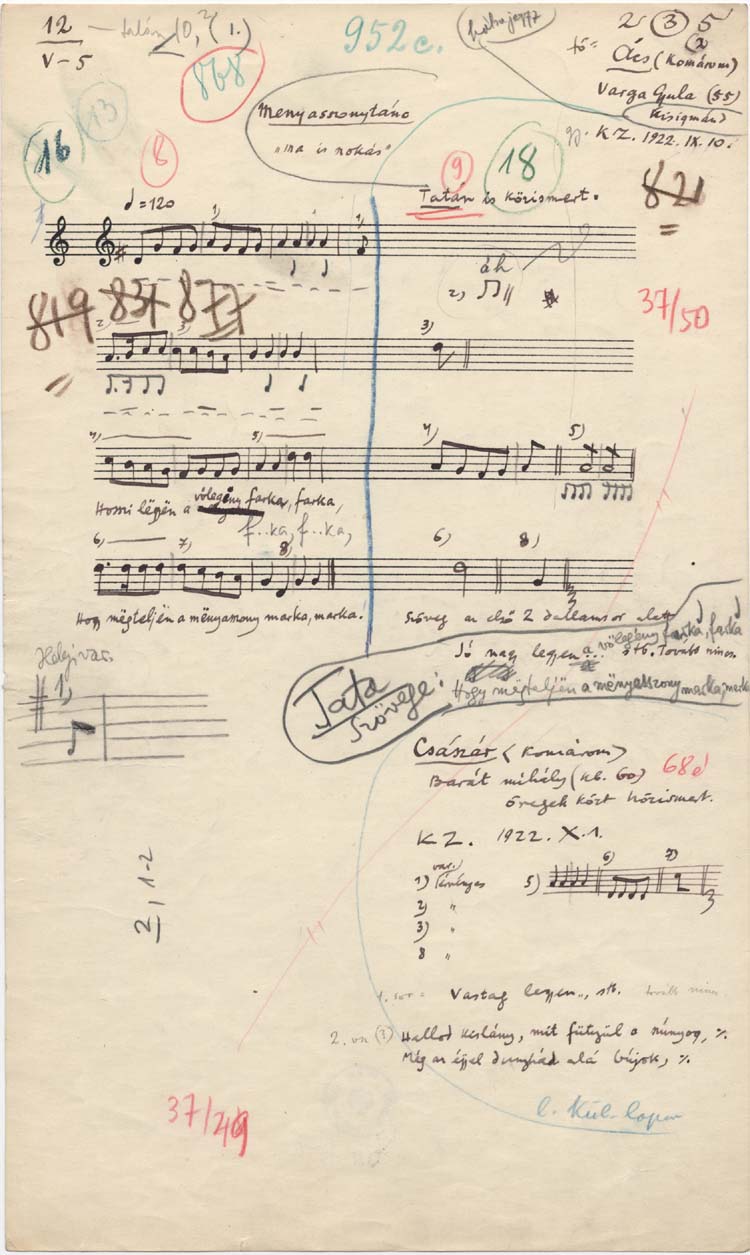 12
V-5
talán 10, (1.)
952c.
hátrajegyz
2 3 5
(2)
Ács (Komárom)
Varga Gyula (55)
Kisigmánd
K.Z. 1922. IX. 10.
868
13
16
8
Menyasszonytánc
"ma is szokás"
9
18
Tatán is közismert.
821
♩ = 120
1)
1)
áh
2)
37/50
819 831 877
2)
3)
3)
4)
5)
4)
5)
Hosni légén a vőlegény farka, farka,
f..ka, f..ka,
6)
7)
8)
6)
8)
Hogy mëgteljén a mënyasszony marka, marka.
Szöveg az első 2 dallamsor alatt
Jó nagy legyen a vőlegény farka, farka
stb. Tovább nincs.
Tata
szövege:
Hogy mëgteljén a mënyasszony marka, marka
1)
Császár (Komárom)
68é
Barát Mihály (kb. 60)
öregek közt közismert.
K Z. 1922. X. 1.
var.)
1) érvényes
2) "
3) "
8 "
5)
6)
7)
2, 1-2
1. sor = Vastag legyen.., stb. tovább nincs
2. vsz (3) Hallod kislány, mit fütyül a szúnyog, %.
Még az éjjel dunyhád alá bújok, %.
l. Kül. lapon
37/49